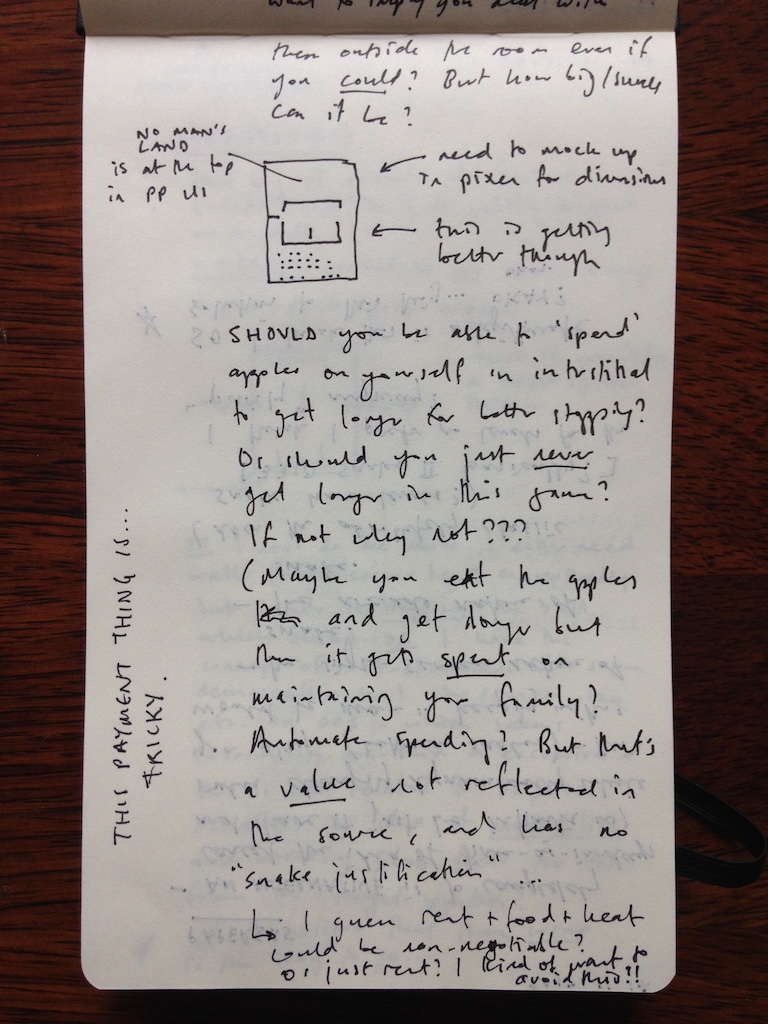 want to imply you deal with
them outside the room even if
you could? But how big/small
can it be?
NO MAN'S
LAND
is at the top
in PP US
need to mock up
in pixer for dimensions
this is getting
better though
SHOULD you be able to 'spend'
apples on yourself in interstitial
to get longer for better stopping?
Or should you just never
get longer in this game?
If not why not???
(Maybe you eat the apples
and get longer but
then it gets spent on
maintaining your family?
Automate spending? But that's
a value not reflected in
the source, and has no
"snake justification" ...
↳ I guess rent + food + heat
could be non-negotiable?
Or just rent? I kind of want to
avoid this!!
THIS PAYMENT THING IS...
TRICKY.